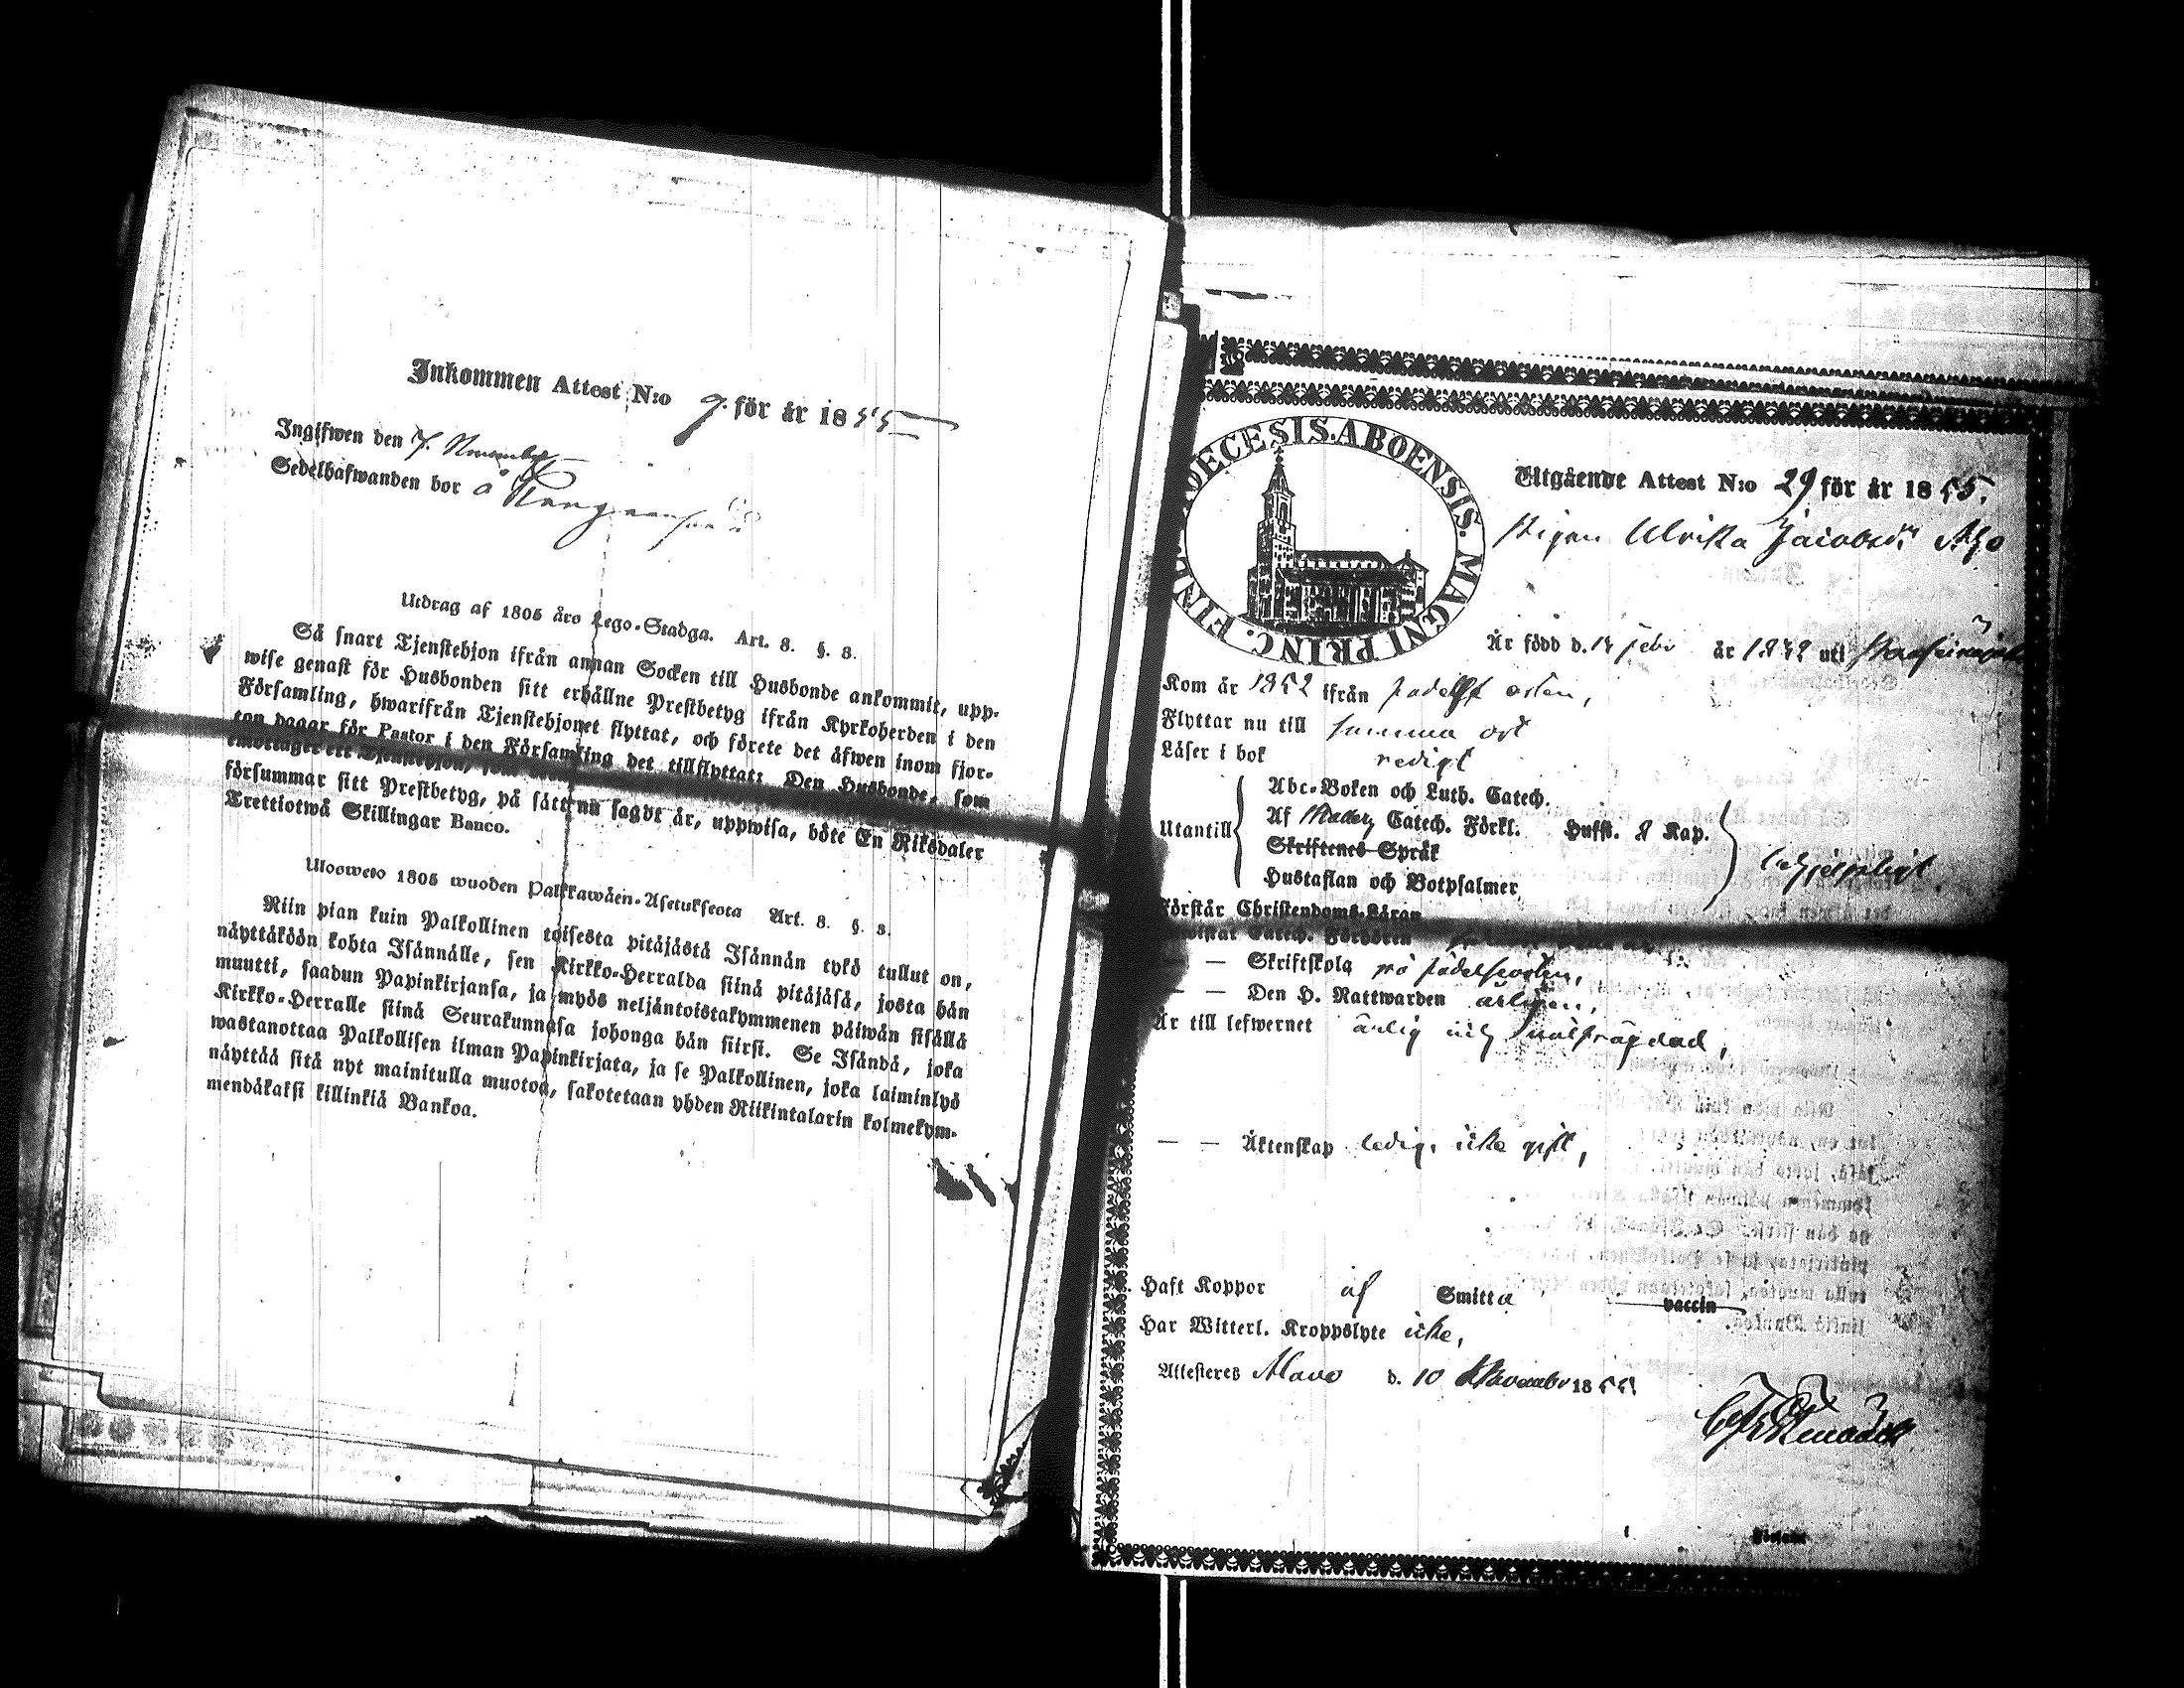 Inkommen Attest N:o 9. för år 1855
Ingifwen den 7. November
Sedelhafwanden bor å
Utdrag af 1805 års Lego-Stadga. Art. 8. §. 8.
Så snart Tjenstehjon ifrån annan Socken till Husbonde ankommit, upp-
wise genast för Husbonden sitt erhållne Prestbetyg ifrån Kyrkoherden i den
Församling, hwarifrån Tjenstehjonet flyttat, och förete det äfwen inom fjor-
ton dagar för Pastor i den Församling det tillflyttat: Den Husbonde, som
emottager ett Tjenstehjon,
försummar sitt Prestbetyg, på sätt nu sagdt är, uppwisa, böte En Riksdaler
Trettiotwå Skillingar Banco.
Ulosweto 1805 wuoden Palkkawäen-Asetuksesta Art. 8. §. 8.
Niin pian kuin Palkollinen toisesta pitäjästä Isännän tykö tullut on,
näyttäköön kohta Isännälle, sen Kirkko-Herralda siinä pitäjäsä, josta hän
muutti, saadun Papinkirjansa, ja myös neljäntoistakymmenen päiwän sisällä
Kirkko-Herralle siinä Seurakunnasa johonga hän siirsi. Se Isändä, joka
wastanottaa Palkollisen ilman Papinkirjata, ja se Palkollinen, joka laiminlyö
näyttää sitä nyt mainitulla muotoa, sakotetaan yhden Riikintalarin kolmekym-
mendäkaksi killinkiä Bankoa.
DIOECESIS. ABOENSIS. MAGNI PRINC. FINL
Utgående Attest N:o 29 för år 1855.
Pigan Ulrika Jacobsdr
Är född d. 14 febr år 1832 uti
Kom år 1852 ifrån födelse orten,
Flyttar nu till samma ort
Läser i bok redigt
Utantill
Abc-Boken och Luth. Catech.
Af Catech. Förkl. Hufst. 8 Kap.
Skriftenes Språk
Hustaflan och Botpsalmer
Förstår Christendoms-Läran
Bewistat Catech. Förhören
— Skriftskola på födelseorten,
— — Den H. Nattwarden årligen,
Är till lefwernet ärlig och wälfrägdad,
— — Äktenskap ledig, icke gift,
Haft Koppor af Smitta vaccin
Har Witterl. Kroppslyte icke,
Attesteres Alavo d. 10 November 1855